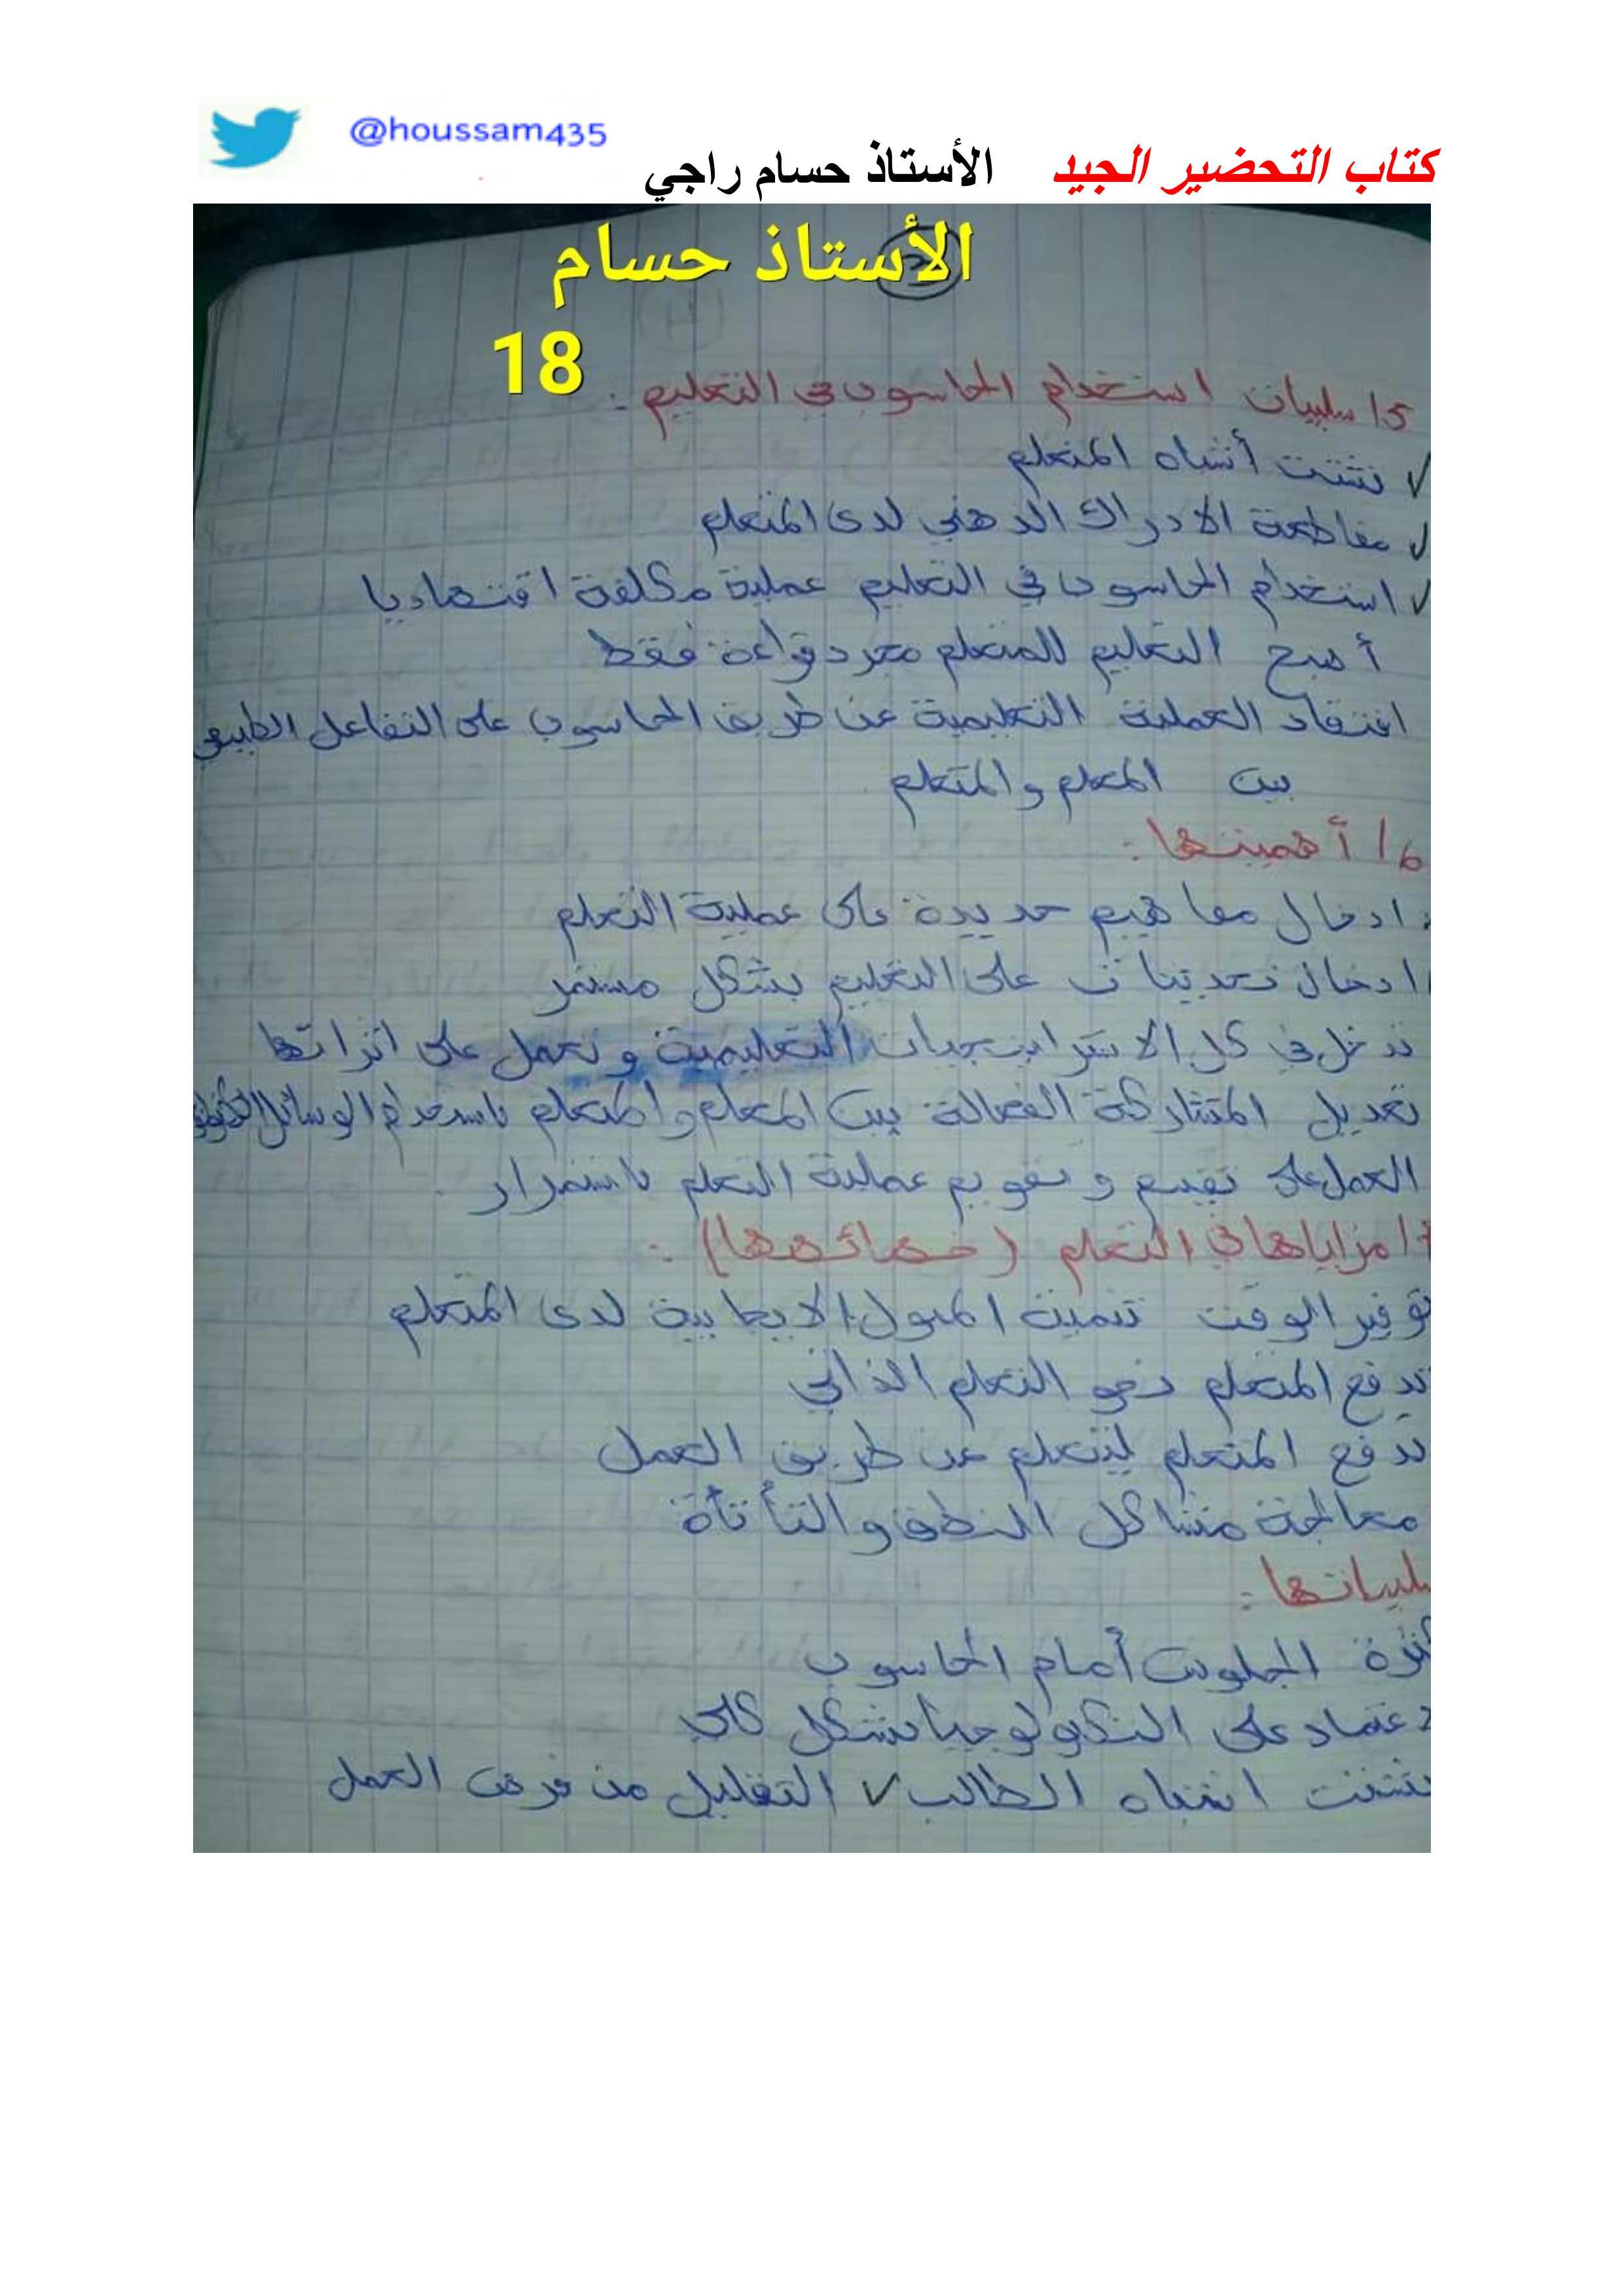 @houssam435
كتاب التحضير الجيد الأستاذ حسام راجي
الأستاذ حسام
18
5/ سلبيات استخدام الحاسوب في التعليم :
✓ تشتت أنتباه المتعلم
✓ مقاطعة الادراك الدهني لدى المتعلم
✓ استخدام الحاسوب في التعليم عملية مكلفة اقتصاديا
أصبح التعليم للمتعلم مجرد قراءة فقط
افتقاد العملية التعليمية عن طريق الحاسوب على التفاعل الطبيعي
بين المعلم والمتعلم
6/ أهميتها :
ادخال مفاهيم جديدة على عملية التعلم
ادخال تحديثات على التعليم بشكل مستمر
تدخل في كل الاستراتيجيات التعليمية وتعمل على اثرائها
تعديل المتشاركة الفعالة بين المعلم والمتعلم باستخدام الوسائل
العمل على تقييم وتقويم عملية التعلم باستمرار .
7/ مزاياها في التعلم (خصائصها) :
توفير الوقت تنمية الميول الايجابية لدى المتعلم
تدفع المتعلم نحو التعلم الذاتي
تدفع المتعلم ليتعلم عن طريق العمل
معالجة مشاكل النطق والتأتأة
سلبياتها :
كثرة الجلوس أمام الحاسوب
اعتماد على التكنولوجيا بشكل كلي
تشتت انتباه الطالب ✓ التقليل من فرص العمل